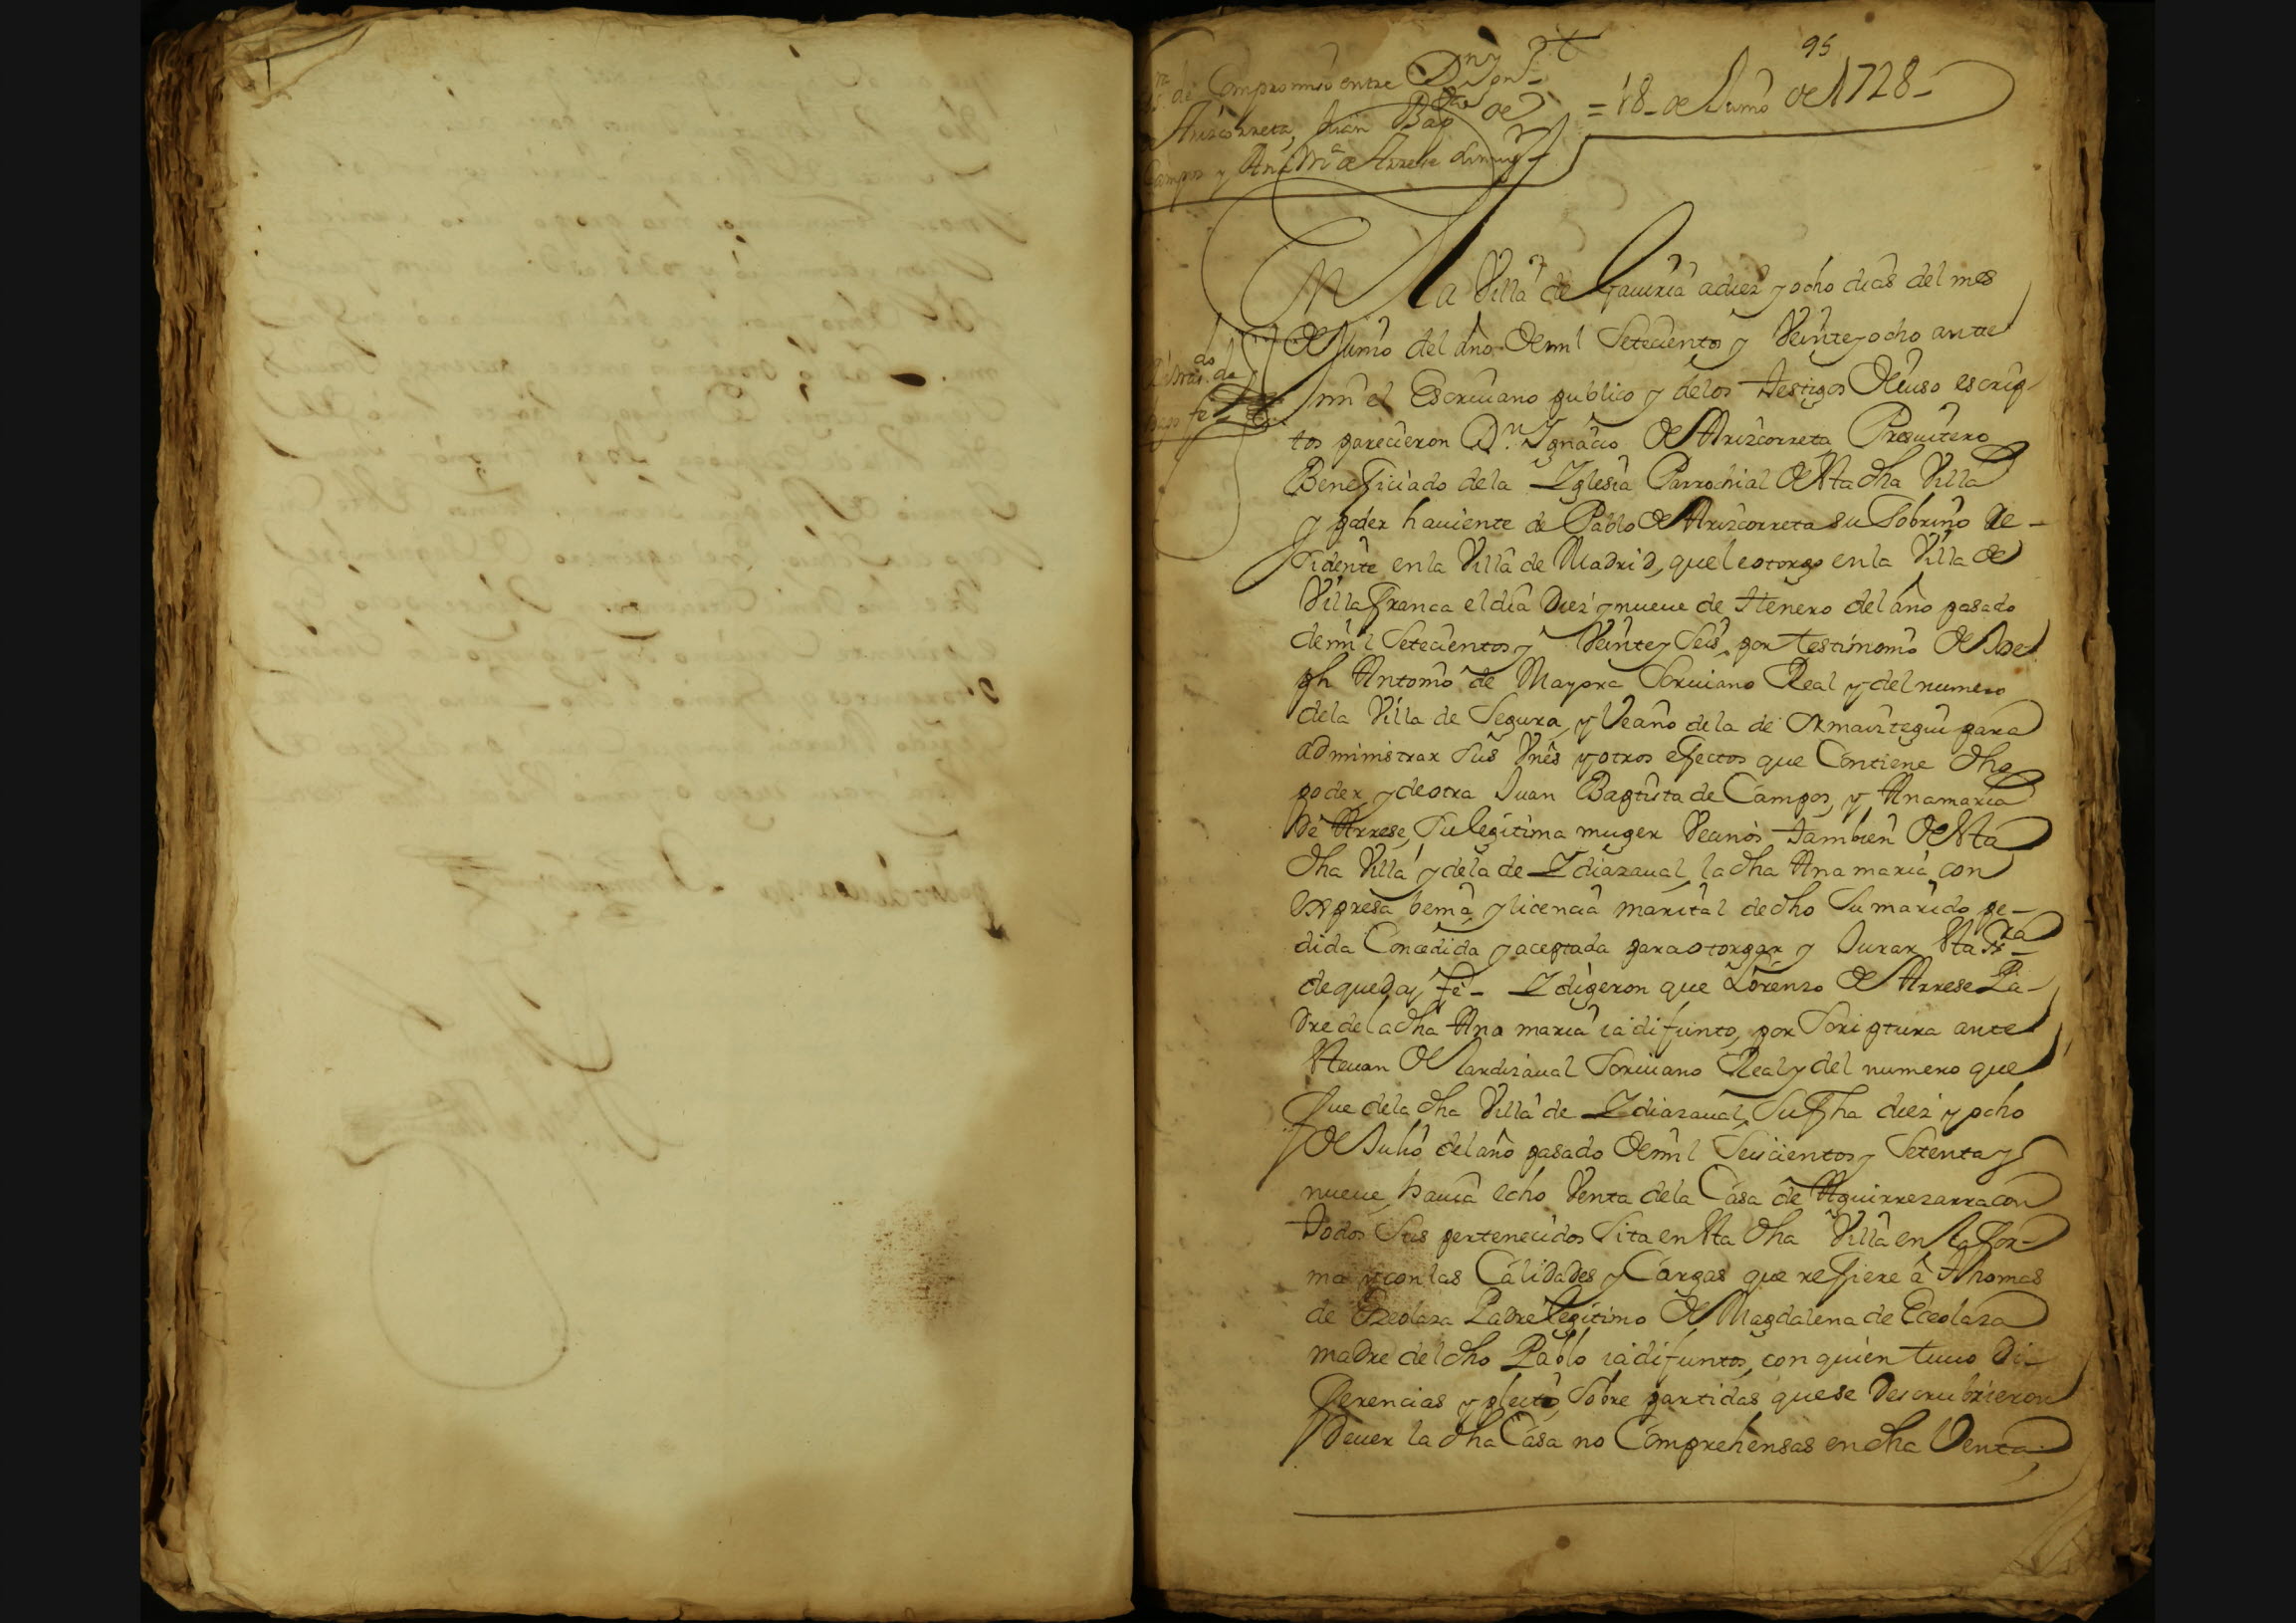 95
de Compromiso entre Dn Ign.
de Arizcorreta, Juan Bap.ta de = 18 - de Junio de 1728 -
Campos y Ana Mª de Arrese su muger
En la Villa de Gauiria a diez y ocho dias del mes
de Junio del año de mil Setecientos y Veinte y ocho ante
mi el Escriuano publico y de los testigos de iuso escrip-
tos parecieron Dn. Ignacio de Arizcorreta Presuitero
Beneficiado de la Iglesia Parrochial de Sta dha Villa
y poder hauiente de Pablo de Arizcorreta su Sobrino Re-
sidente en la Villa de Madrid, que le otorgo en la Villa de
Villafranca el dia Diez y nueue de Henero del año pasado
de mil Setecientos y Veinte y Seis, por testimonio de Jose
ph Antonio de Mayora Scriuano Real y del numero
de la Villa de Segura, y Veano de la de Ormaiztegui para
administrar Sus Vnes y otros efectos que Contiene dho
poder, y de otra Juan Baptista de Campos, y Anamaria
de Arrese, Su legitima muger Vecinos tambien de Sta
dha Villa y de la de Idiazaual, la dha Ana maria con
expresa benia y licencia marital de dho Su marido pe-
dida Concedida y aceptada para otorgar y Jurar Sta Scra
de que doy fe - I digeron que Lorenzo de Arrese Pa-
dre de la dha Ana maria ia difunto, por Scriptura ante
Steuan de Lardizaual Scriuano Real y del numero que
fue de la dha Villa de Idiazaual, Su fha diez y ocho
de Julio del año pasado de mil Seiscientos y Setenta y
nueue, hauia echo Venta de la Casa de Aguirrezarra con
todos Sus pertenecidos Sita en Sta dha Villa en la for-
ma y con las Calidades y Cargas que refiere â Thomas
de Eceolaza Padre legitimo de Magdalena de Eceolaza
madre del dho Pablo ia difuntos, con quien tuuo Di-
ferencias y pleito, Sobre partidas que se Descubrieron
Deuer la dha Casa no Comprehensas en dha Venta